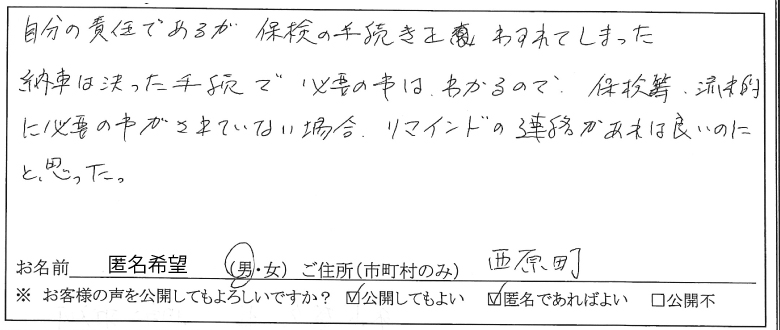 自分の責任であるが 保検の手続きを わすれてしまった
納車は決った手続で 必要の事は、わかるので、保検等、流れ的
に必要の事がされていない場合、リマインドの連絡があれば良いのに
と、思った。
お名前 匿名希望 (男・女) ご住所(市町村のみ) 西原町
※ お客様の声を公開してもよろしいですか? ☑公開してもよい ☑匿名であればよい □公開不